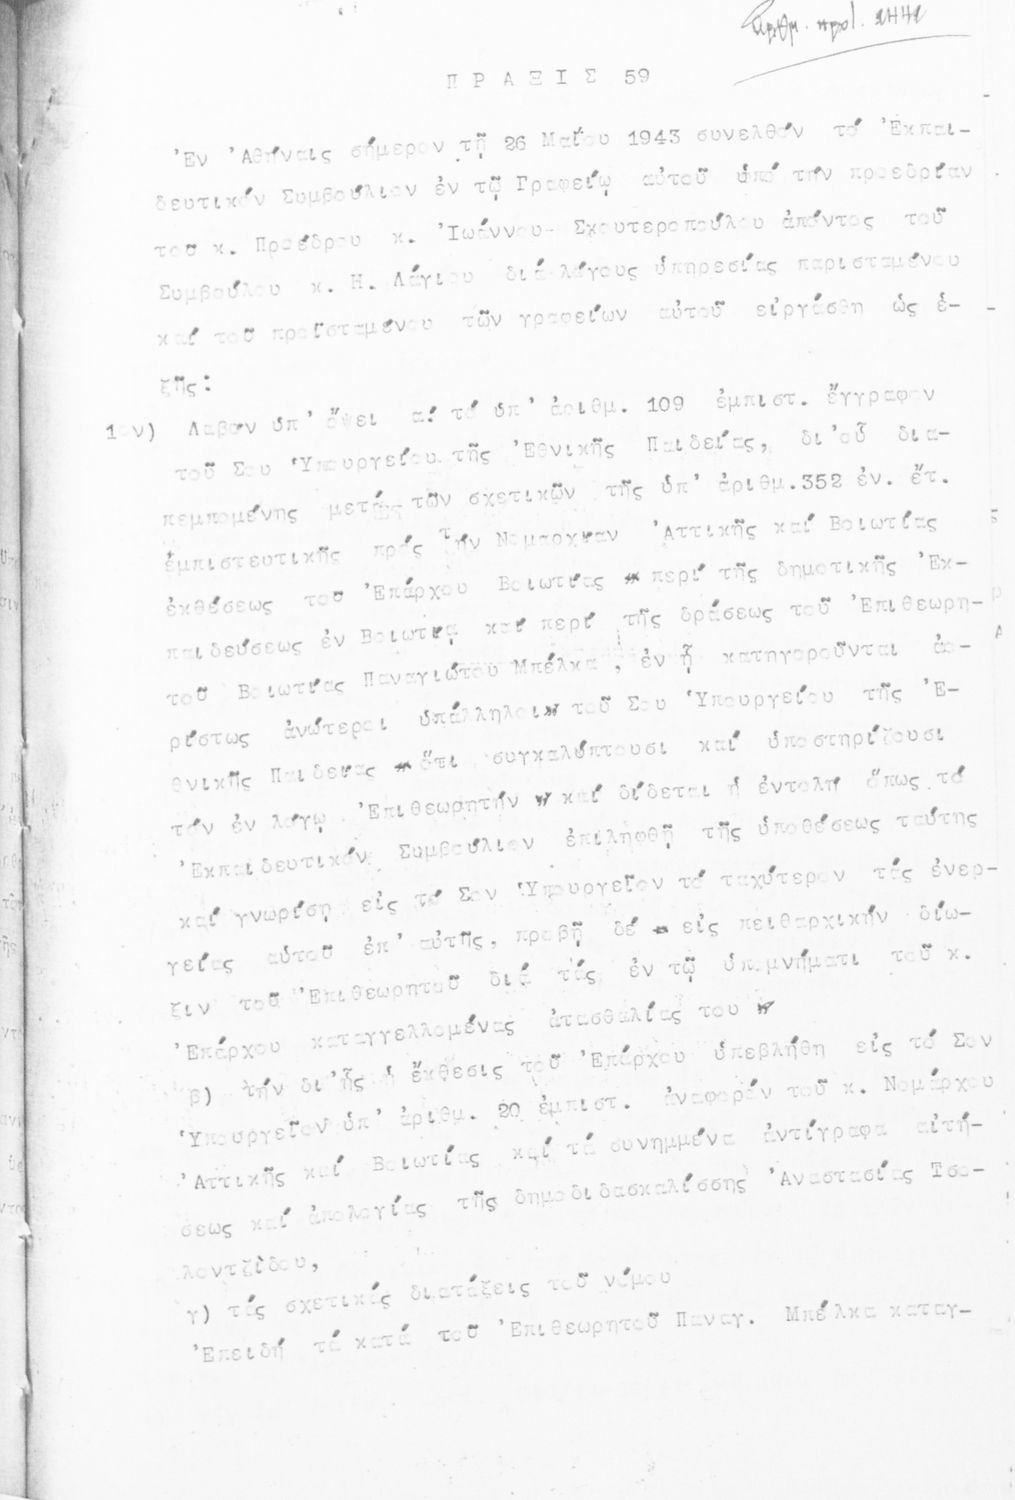 Ἀριθμ. πρωτ. 2442
ΠΡΑΞΙΣ 59
Ἐν Ἀθήναις σήμερον τῇ 26 Μαΐου 1943 συνελθόν τό Ἐκπαι-
δευτικόν Συμβούλιον ἐν τῷ Γραφείῳ αὐτοῦ ὑπό τήν προεδρίαν
τοῦ κ. Προέδρου κ. Ἰωάννου Σκουτεροπούλου ἀπόντος τοῦ
Συμβούλου κ. Η. Λάγιου διά λόγους ὑπηρεσίας παρισταμένου
καί τοῦ προϊσταμένου τῶν γραφείων αὐτοῦ εἰργάσθη ὡς ἑ-
ξῆς:
1ον) Λαβόν ὑπ' ὄψει α) τό ὑπ' ἀριθμ. 109 ἐμπιστ. ἔγγραφον
τοῦ Σου Ὑπουργείου τῆς Ἐθνικῆς Παιδείας, δι'οὗ δια-
πεμπομένης μετά τῶν σχετικῶν τῆς ὑπ' ἀριθμ.352 ἐν. ἔτ.
ἐμπιστευτικῆς πρός τήν Νομαρχίαν Ἀττικῆς καί Βοιωτίας
ἐκθέσεως τοῦ Ἐπάρχου Βοιωτίας περί τῆς δημοτικῆς Ἐκ-
παιδεύσεως ἐν Βοιωτίᾳ καί περί τῆς δράσεως τοῦ Ἐπιθεωρη-
τοῦ Βοιωτίας Παναγιώτου Μπέλκα, ἐν ᾗ κατηγοροῦνται ἀο-
ρίστως ἀνώτεροι ὑπάλληλοι τοῦ Σου Ὑπουργείου τῆς Ἐ-
θνικῆς Παιδείας ὅτι συγκαλύπτουσι καί ὑποστηρίζουσι
τόν ἐν λόγῳ Ἐπιθεωρητήν καί δίδεται ἡ ἐντολή ὅπως τό
Ἐκπαιδευτικόν Συμβούλιον ἐπιληφθῇ τῆς ὑποθέσεως ταύτης
καί γνωρίσῃ εἰς τό Σον Ὑπουργεῖον τό ταχύτερον τάς ἐνερ-
γείας αὐτοῦ ἐπ' αὐτῆς, προβῇ δέ εἰς πειθαρχικήν δίω-
ξιν τοῦ Ἐπιθεωρητοῦ διά τάς ἐν τῷ ὑπομνήματι τοῦ κ.
Ἐπάρχου καταγγελλομένας ἀτασθαλίας του
β) τήν δι'ἧς ἡ ἔκθεσις τοῦ Ἐπάρχου ὑπεβλήθη εἰς τό Σον
Ὑπουργεῖον ὑπ' ἀριθμ. 20 ἐμπιστ. ἀναφοράν τοῦ κ. Νομάρχου
Ἀττικῆς καί Βοιωτίας καί τά συνημμένα ἀντίγραφα αἰτή-
σεως καί ἀπολογίας τῆς δημοδιδασκαλίσσης Ἀναστασίας Τσο-
λοντζίδου,
γ) τάς σχετικάς διατάξεις τοῦ νόμου
Ἐπειδή τά κατά τοῦ Ἐπιθεωρητοῦ Παναγ. Μπέλκα καταγ-